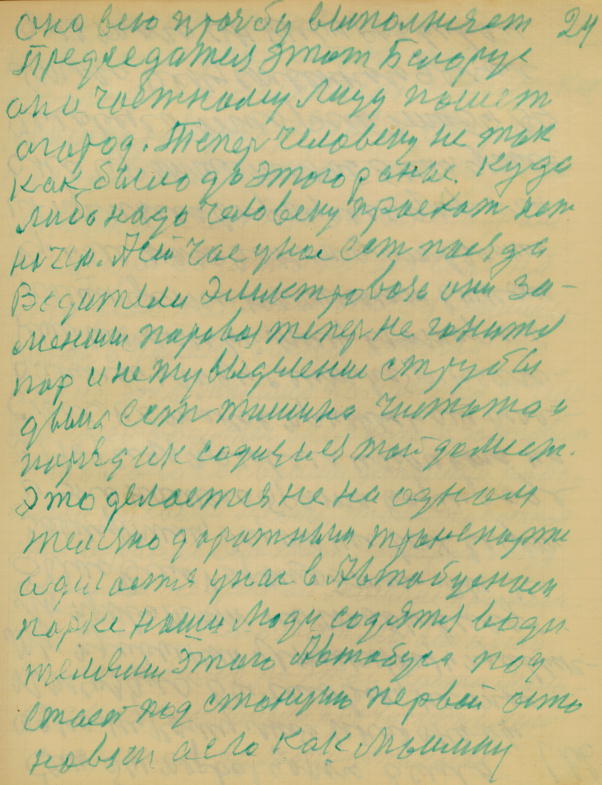 она всю прозбу выполняет 24
Председателя Этот Белорус
она частному лицу пашет
огород. Тепер человеку не так
как было до этого ранше. Куда
либо надо человеку проехат
ночю. А сичас у нас ест поезда
Водители Электровоза они за-
менили паровоз тепер не
пар и нету выделение с трубы
дыма Ест тишина чистота и
порядик садишся
Это делается не на одном
железно дорожным транспорте
у нас в Автобусном
парке наши люди садятся води
телями Этого Автобуса под
стает под станцию первой оста
новки а его как